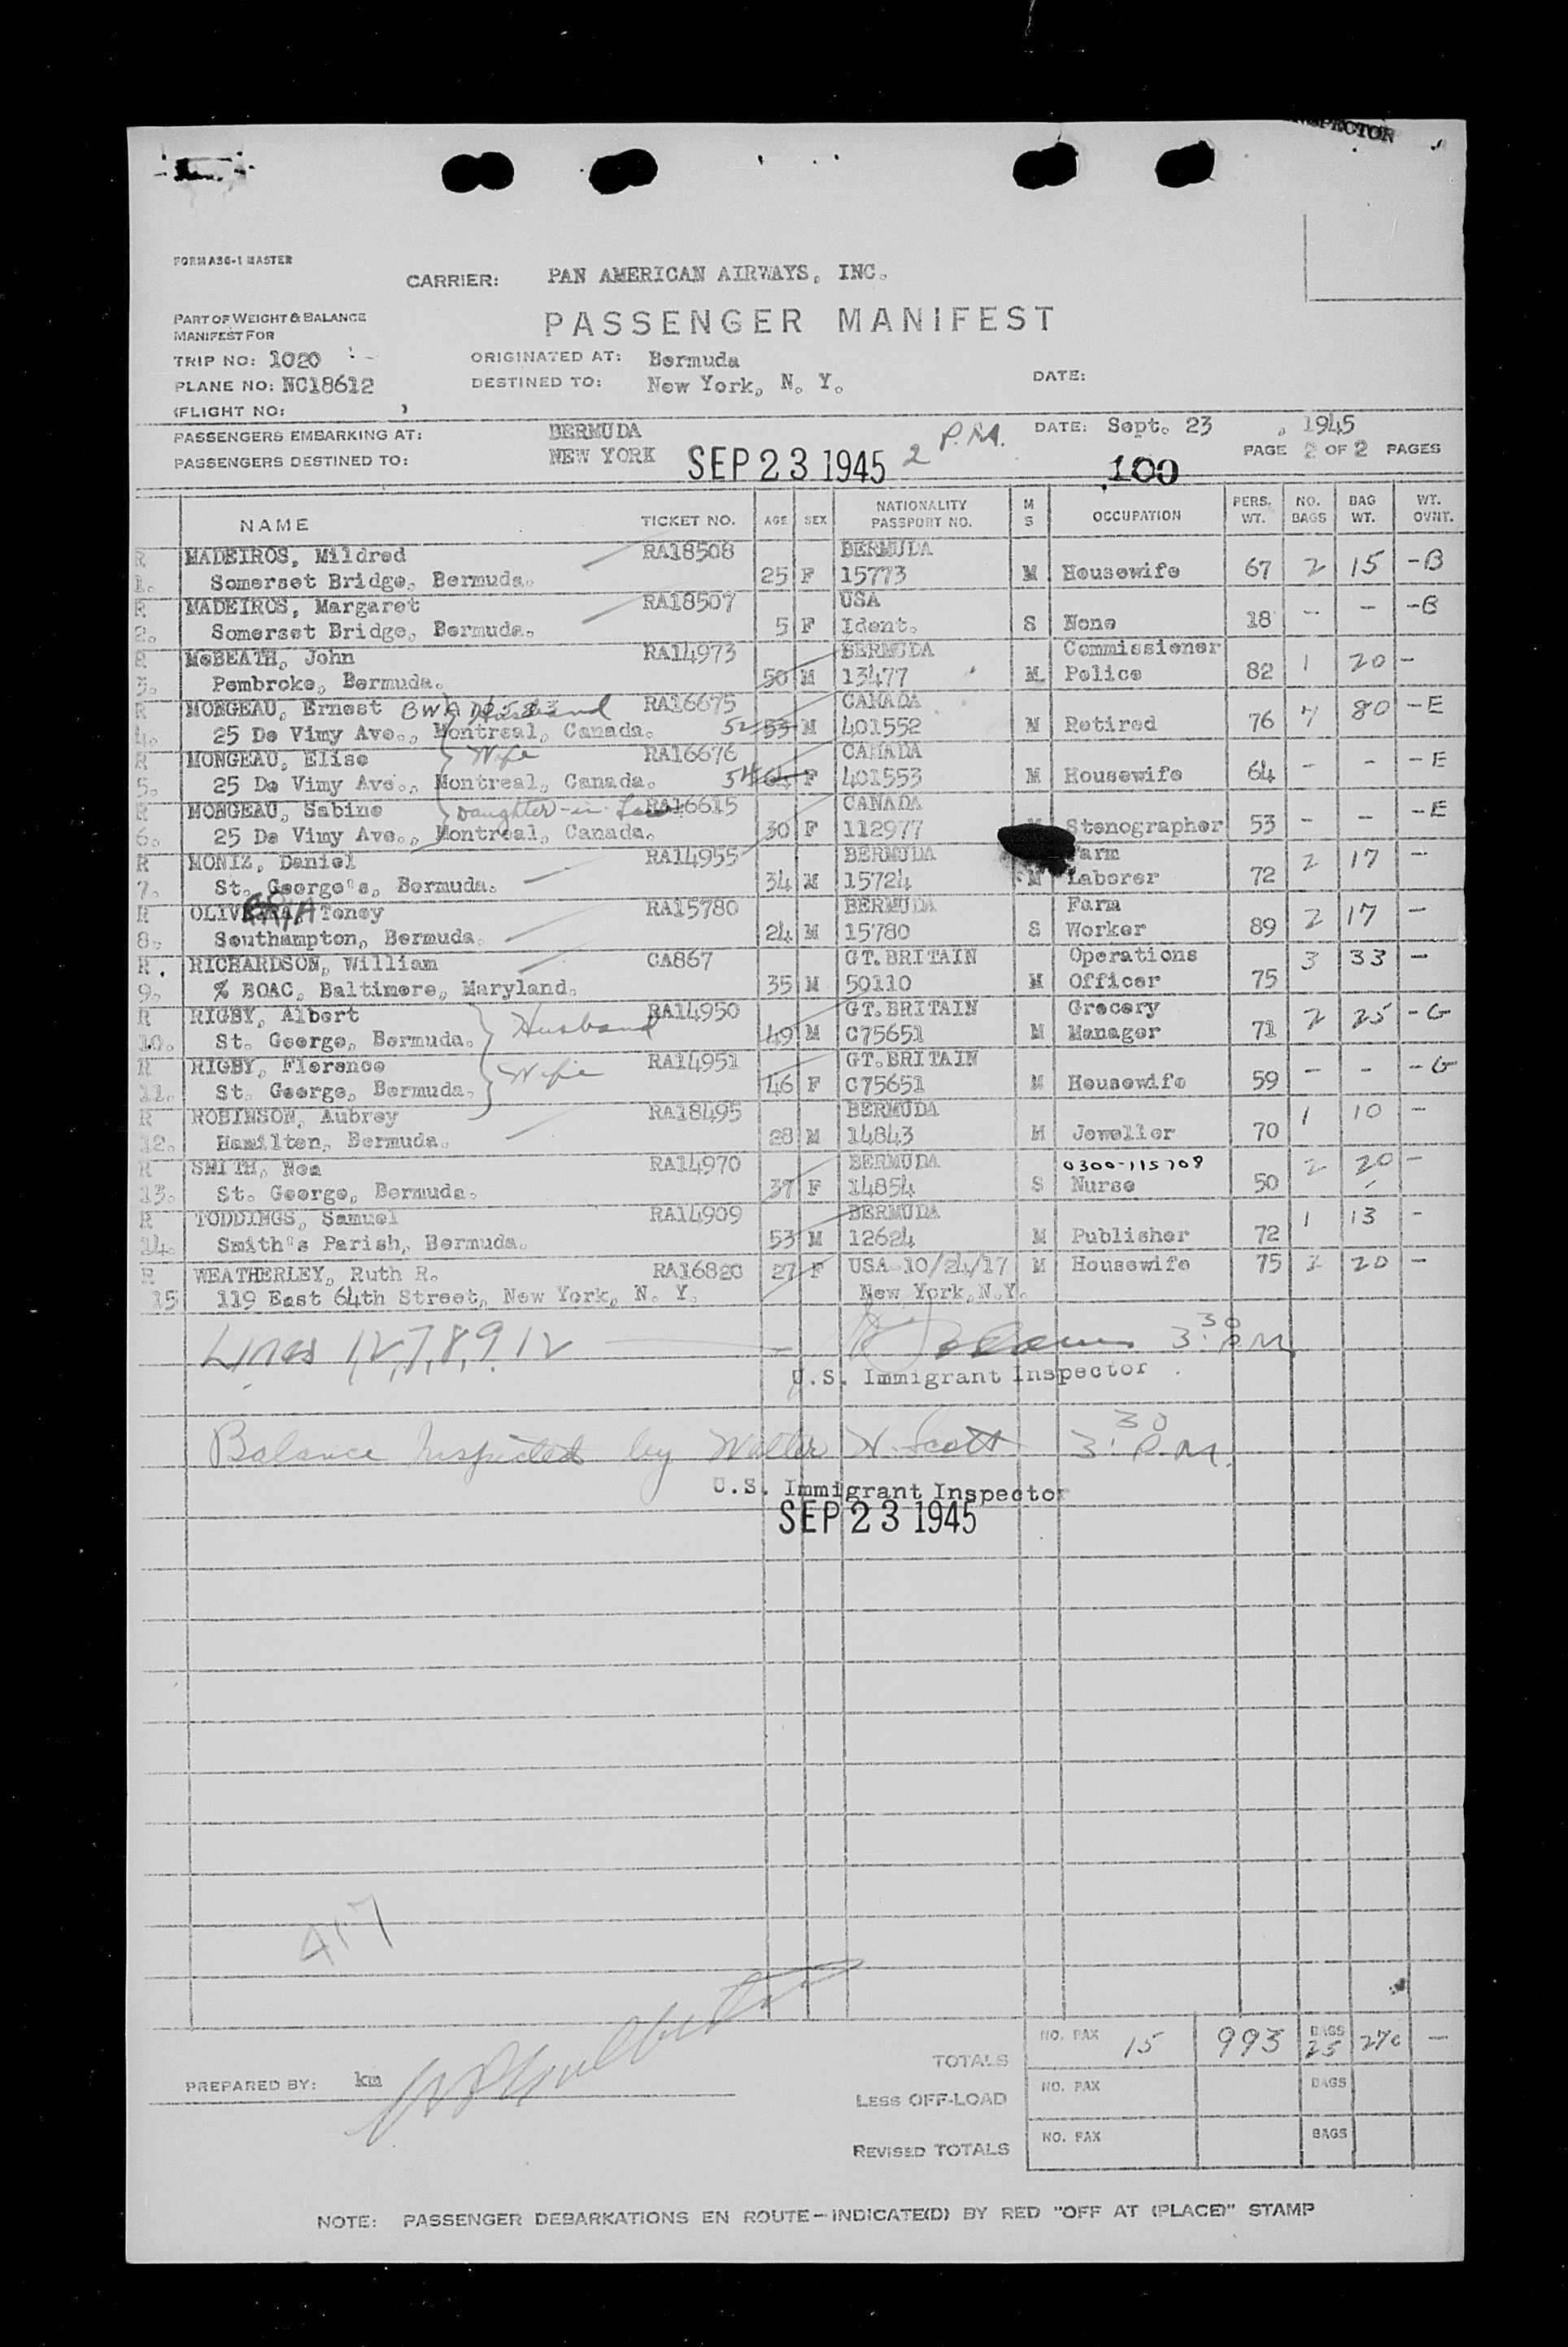 INSPECTOR
FORM A36-1 MASTER
CARRIER: PAN AMERICAN AIRWAYS, INC.
PART OF WEIGHT & BALANCE
MANIFEST FOR
PASSENGER MANIFEST
TRIP NO: 1020 ORIGINATED AT: Bermuda
PLANE NO: NC18612 DESTINED TO: New York, N. Y. DATE:
(FLIGHT NO: )
PASSENGERS EMBARKING AT: BERMUDA DATE: Sept. 23, 1945
PASSENGERS DESTINED TO: NEW YORK SEP 23 1945 2 P.M. 100 PAGE 2 OF 2 PAGES
NAME TICKET NO. AGE SEX NATIONALITY PASSPORT NO. M S OCCUPATION PERS. WT. NO. BAGS BAG WT. WT. OVNT.
R MADEIROS, Mildred RA18508 BERMUDA
1. Somerset Bridge, Bermuda. 25 F 15773 M Housewife 67 2 15 -B
R MADEIROS, Margaret RA18507 USA
2. Somerset Bridge, Bermuda. 5 F Ident. S None 18 - - -B
R McBEATH, John RA14973 BERMUDA Commissioner
3. Pembroke, Bermuda. 50 M 13477 M Police 82 1 20 -
R MONGEAU, Ernest Husband RA16675 CANADA
4. 25 De Vimy Ave., Montreal, Canada. 52 53 M 401552 M Retired 76 7 80 -E
R MONGEAU, Elise Wife RA16676 CANADA
5. 25 De Vimy Ave., Montreal, Canada. 54 F 401553 M Housewife 64 - - -E
R MONGEAU, Sabine Daughter-in-Law RA16615 CANADA
6. 25 De Vimy Ave., Montreal, Canada. 30 F 112977 Stenographer 53 - - -E
R MONIZ, Daniel RA14955 BERMUDA Farm
7. St. George's, Bermuda. 34 M 15724 M Laborer 72 2 17 -
R Toney RA15780 BERMUDA Farm
8. Southampton, Bermuda. 24 M 15780 S Worker 89 2 17 -
R RICHARDSON, William CA867 GT. BRITAIN Operations
9. % BOAC, Baltimore, Maryland. 35 M 50110 M Officer 75 3 33 -
R RIGBY, Albert Husband RA14950 GT. BRITAIN Grocery
10. St. George, Bermuda. 49 M C75651 M Manager 71 2 25 -G
R RIGBY, Florence Wife RA14951 GT. BRITAIN
11. St. George, Bermuda. 46 F C75651 M Housewife 59 - - -G
R ROBINSON, Aubrey RA18495 BERMUDA
12. Hamilton, Bermuda. 28 M 14843 M Jeweller 70 1 10 -
R SMITH, Nea RA14970 BERMUDA 0300-115708
13. St. George, Bermuda. 37 F 14854 S Nurse 50 2 20 -
R TODDINGS, Samuel RA14909 BERMUDA
14. Smith's Parish, Bermuda. 53 M 12624 M Publisher 72 1 13 -
R WEATHERLEY, Ruth R. RA16820 27 F USA 10/24/17 M Housewife 75 2 20 -
15 119 East 64th Street, New York, N. Y. New York, N.Y.
Lines 1,2,7,8,9,12 3:30 P.M.
U.S. Immigrant Inspector
Balance Inspected by Walter H. Scott 3:30 P.M.
U.S. Immigrant Inspector
SEP 23 1945
417
TOTALS NO. PAX 15 993 BAGS 25 270 -
PREPARED BY: km
LESS OFF-LOAD NO. PAX BAGS
REVISED TOTALS NO. PAX BAGS
NOTE: PASSENGER DEBARKATIONS EN ROUTE—INDICATE(D) BY RED "OFF AT (PLACE)" STAMP